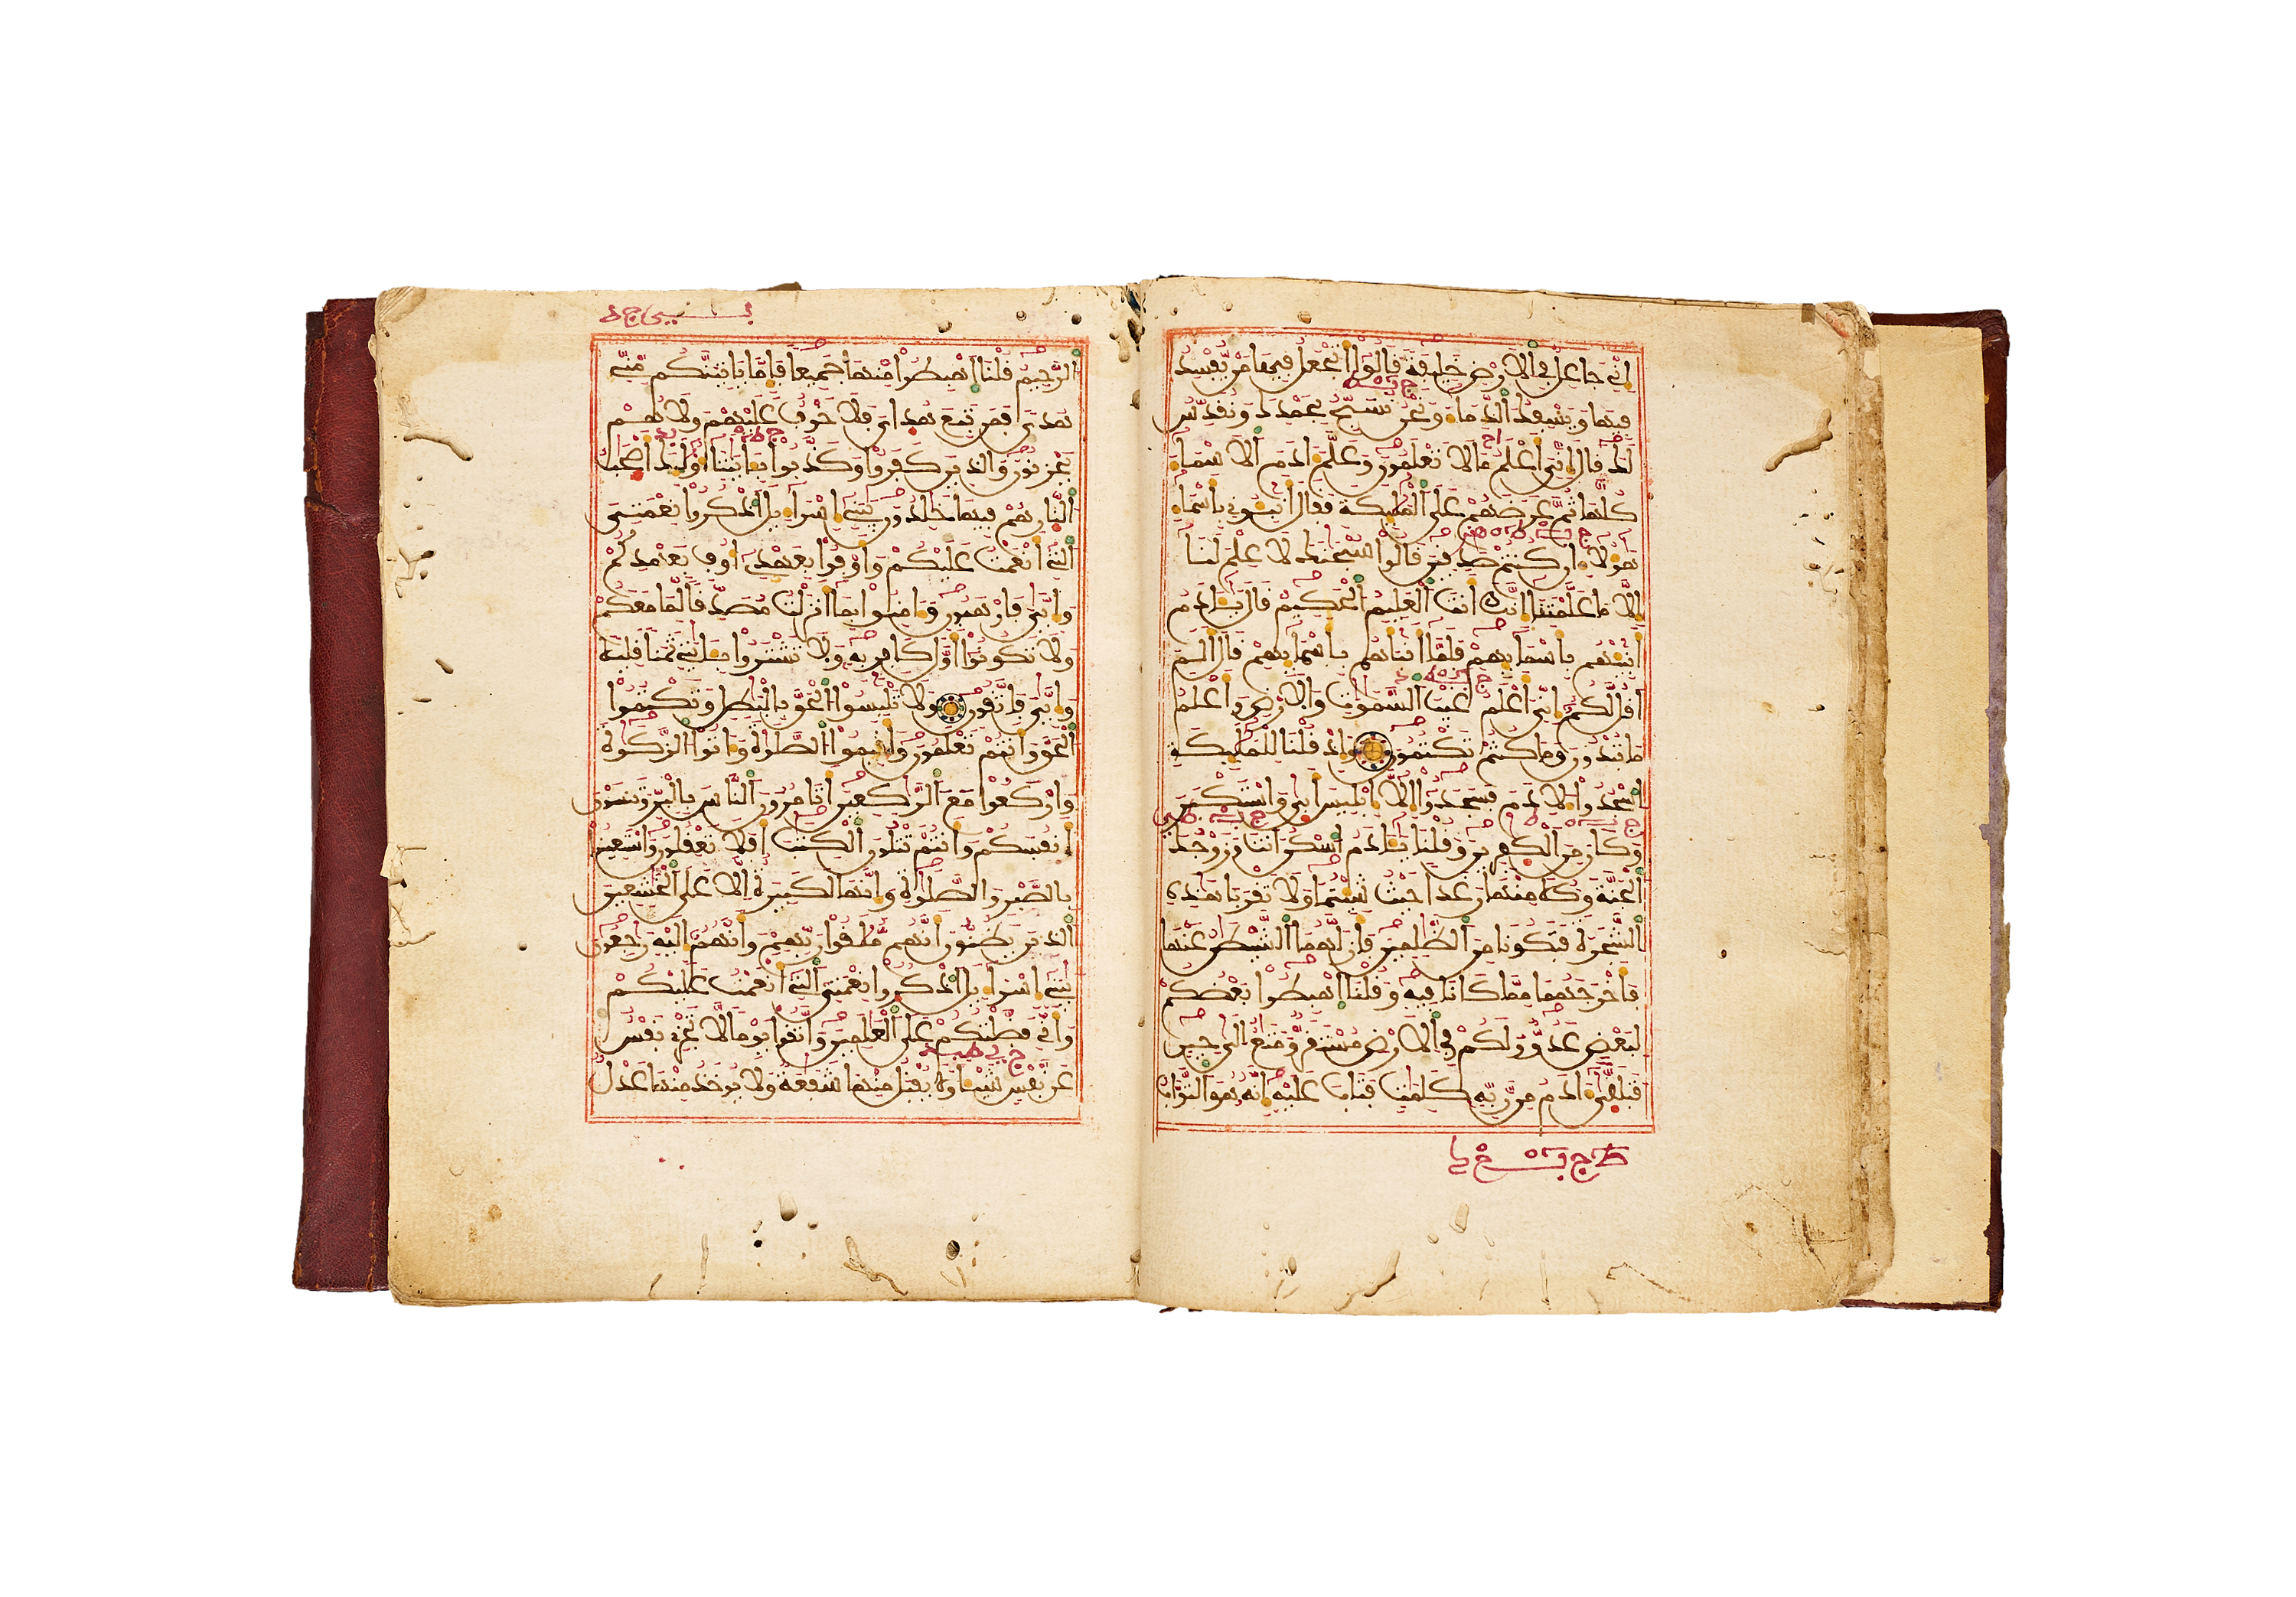 إِنِّي جَاعِلٌ فِي اَلَارْضِ خَلِيفَةً قَالُوٓاْ أَتَجْعَلُ فِيهَا مَنْ يُّفْسِدُ
فِيهَا وَيَسْفِكُ اُلدِّمَآءَ وَنَحْنُ نُسَبِّحُ بِحَمْدِكَ وَنُقَدِّسُ
لَكَ قَالَ إِنِّيَ أَعْلَمُ مَا لَا تَعْلَمُونَ وَعَلَّمَ ءَادَمَ اَلَاسْمَآءَ
كُلَّهَا ثُمَّ عَرَضَهُمْ عَلَى اَلْمَلَٰٓئِكَةِ فَقَالَ أَنۢبِـُٔونِي بِأَسْمَآءِ
هَٰٓؤُلَآءِ ان كُنتُمْ صَٰدِقِينَ قَالُواْ سُبْحَٰنَكَ لَا عِلْمَ لَنَآ
إِلَّا مَا عَلَّمْتَنَآ إِنَّكَ أَنتَ اَلْعَلِيمُ اُلْحَكِيمُ قَالَ يَٰٓـَٔادَمُ
أَنۢبِئْهُم بِأَسْمَآئِهِمْ فَلَمَّآ أَنۢبَأَهُم بِأَسْمَآئِهِمْ قَالَ أَلَمَ
اَقُل لَّكُمُۥٓ إِنِّيَ أَعْلَمُ غَيْبَ اَلسَّمَٰوَٰتِ وَالَارْضِ وَأَعْلَمُ
مَا تُبْدُونَ وَمَا كُنتُمْ تَكْتُمُونَ وَإِذْ قُلْنَا لِلْمَلَٰٓئِكَةِ
اِسْجُدُواْ لِأَدَمَ فَسَجَدُوٓاْ إِلَّآ إِبْلِيسَ أَبَىٰ وَاسْتَكْبَرَ
وَكَانَ مِنَ اَلْكَٰفِرِينَ وَقُلْنَا يَٰٓـَٔادَمُ اُسْكُنَ اَنتَ وَزَوْجُكَ
اَلْجَنَّةَ وَكُلَا مِنْهَا رَغَدًا حَيْثُ شِئْتُمَا وَلَا تَقْرَبَا هَٰذِهِ
اِلشَّجَرَةَ فَتَكُونَا مِنَ اَلظَّٰلِمِينَ فَأَزَلَّهُمَا اَلشَّيْطَٰنُ عَنْهَا
فَأَخْرَجَهُمَا مِمَّا كَانَا فِيهِ وَقُلْنَا اَهْبِطُواْ بَعْضُكُمْ
لِبَعْضٍ عَدُوٌّ وَلَكُمْ فِي اِلَارْضِ مُسْتَقَرٌّ وَمَتَٰعٌ اِلَىٰ حِينٍ
فَتَلَقَّىٰٓ ءَادَمُ مِن رَّبِّهِ كَلِمَٰتٍ فَتَابَ عَلَيْهِ إِنَّهُ هُوَ اَلتَّوَّابُ
اُلرَّحِيمُ قُلْنَا اَهْبِطُواْ مِنْهَا جَمِيعًا فَإِمَّا يَاتِيَنَّكُم مِّنِّي
هُدًى فَمَن تَبِعَ هُدَايَ فَلَا خَوْفٌ عَلَيْهِمْ وَلَا هُمْ
يَحْزَنُونَ وَالذِينَ كَفَرُواْ وَكَذَّبُواْ بِـَٔايَٰتِنَآ أُوْلَٰٓئِكَ أَصْحَٰبُ
اُلنَّارِ هُمْ فِيهَا خَٰلِدُونَ يَٰبَنِيٓ إِسْرَآءِيلَ اَذْكُرُواْ نِعْمَتِيَ
اَلتِيٓ أَنْعَمْتُ عَلَيْكُمْ وَأَوْفُواْ بِعَهْدِيٓ أُوفِ بِعَهْدِكُمْ
وَإِيَّٰيَ فَارْهَبُونِ وَءَامِنُواْ بِمَآ أَنزَلْتُ مُصَدِّقًا لِّمَا مَعَكُمْ
وَلَا تَكُونُوٓاْ أَوَّلَ كَافِرٍ بِهِ وَلَا تَشْتَرُواْ بِـَٔايَٰتِي ثَمَنًا قَلِيلًا
وَإِيَّٰيَ فَاتَّقُونِ وَلَا تَلْبِسُواْ اُلْحَقَّ بِالْبَٰطِلِ وَتَكْتُمُواْ
اُلْحَقَّ وَأَنتُمْ تَعْلَمُونَ وَأَقِيمُواْ اُلصَّلَوٰةَ وَءَاتُواْ اُلزَّكَوٰةَ
وَارْكَعُواْ مَعَ اَلرَّٰكِعِينَ أَتَامُرُونَ اَلنَّاسَ بِالْبِرِّ وَتَنسَوْنَ
أَنفُسَكُمْ وَأَنتُمْ تَتْلُونَ اَلْكِتَٰبَ أَفَلَا تَعْقِلُونَ وَاسْتَعِينُواْ
بِالصَّبْرِ وَالصَّلَوٰةِ وَإِنَّهَا لَكَبِيرَةٌ اِلَّا عَلَى اَلْخَٰشِعِينَ
اَلذِينَ يَظُنُّونَ أَنَّهُم مُّلَٰقُواْ رَبِّهِمْ وَأَنَّهُمُۥٓ إِلَيْهِ رَٰجِعُونَ
يَٰبَنِيٓ إِسْرَآءِيلَ اَذْكُرُواْ نِعْمَتِيَ اَلتِيٓ أَنْعَمْتُ عَلَيْكُمْ
وَأَنِّي فَضَّلْتُكُمْ عَلَى اَلْعَٰلَمِينَ وَاتَّقُواْ يَوْمًا لَّا تَجْزِي نَفْسٌ
عَن نَّفْسٍ شَيْـًٔا وَلَا يُقْبَلُ مِنْهَا شَفَٰعَةٌ وَلَا يُوخَذُ مِنْهَا عَدْلٌ